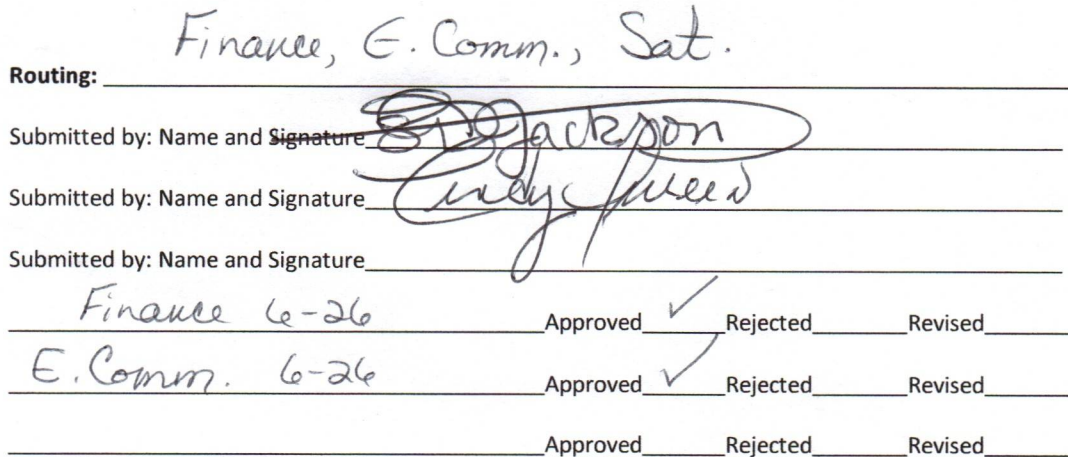 Finance, E. Comm., Sat.
Routing:
Submitted by: Name and Signature Jackson
Submitted by: Name and Signature Cindy
Submitted by: Name and Signature
Finance 6-26 Approved ✓ Rejected Revised
E. Comm. 6-26 Approved ✓ Rejected Revised
Approved Rejected Revised